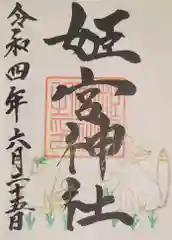 姫宮神社
令和四年六月二十五日